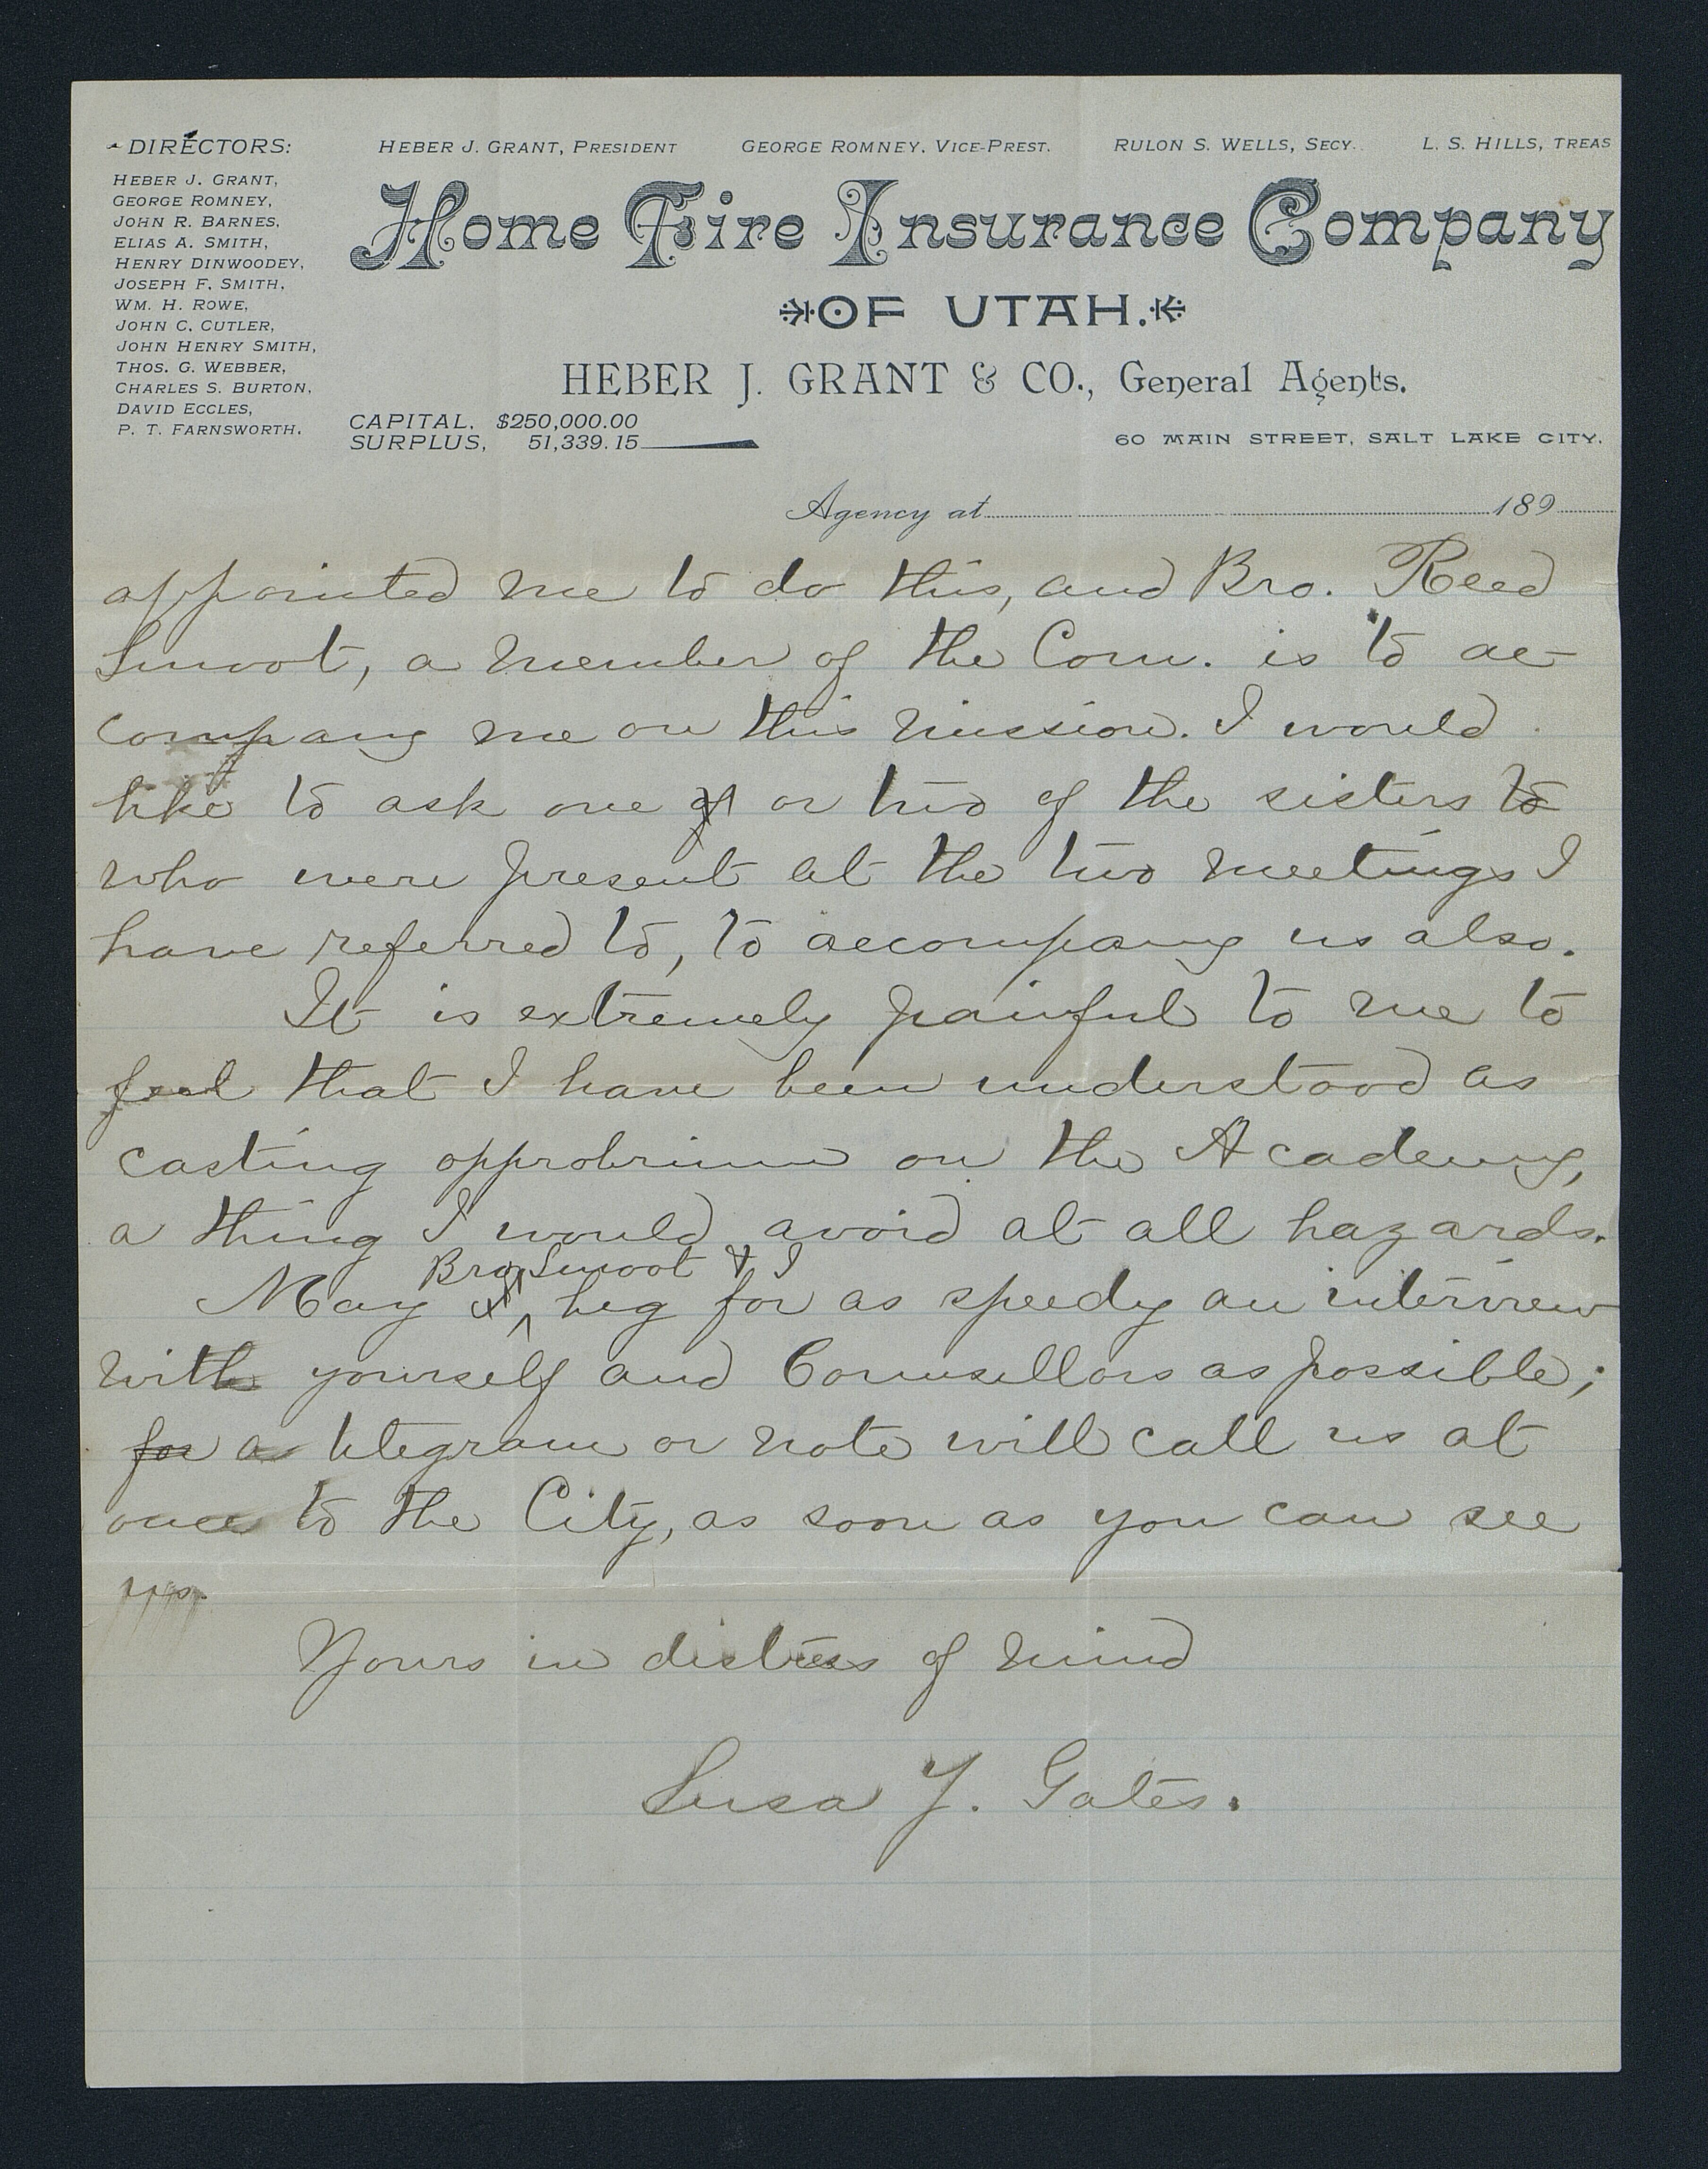 DIRECTORS:
HEBER J. GRANT,
GEORGE ROMNEY,
JOHN R. BARNES,
ELIAS A. SMITH,
HENRY DINWOODEY,
JOSEPH F. SMITH,
WM. H. ROWE,
JOHN C. CUTLER,
JOHN HENRY SMITH,
THOS. G. WEBBER,
CHARLES S. BURTON,
DAVID ECCLES,
P. T. FARNSWORTH.
HEBER J. GRANT, PRESIDENT GEORGE ROMNEY, VICE-PREST. RULON S. WELLS, SECY. L. S. HILLS, TREAS
Home Fire Insurance Company
OF UTAH.
HEBER J. GRANT & CO., General Agents.
CAPITAL, $250,000.00
SURPLUS, 51,339.15
60 MAIN STREET, SALT LAKE CITY.
Agency at 189
appointed me to do this, and Bro. Reed
Smoot, a member of the Com. is to ac-
company me on this mission. I would
like to ask one of or two of the sisters to
who were present at the two meetings I
have referred to, to accompany us also.
It is extremely painful to me to
feel that I have been understood as
casting opprobrium on the Academy,
a thing I would avoid at all hazards.
Bro Smoot & I
May I beg for as speedy an interview
with yourself and Counsellors as possible;
for a telegram or note will call us at
once to the City, as soon as you can see
us.
Yours in distress of mind
Susa Y. Gates.